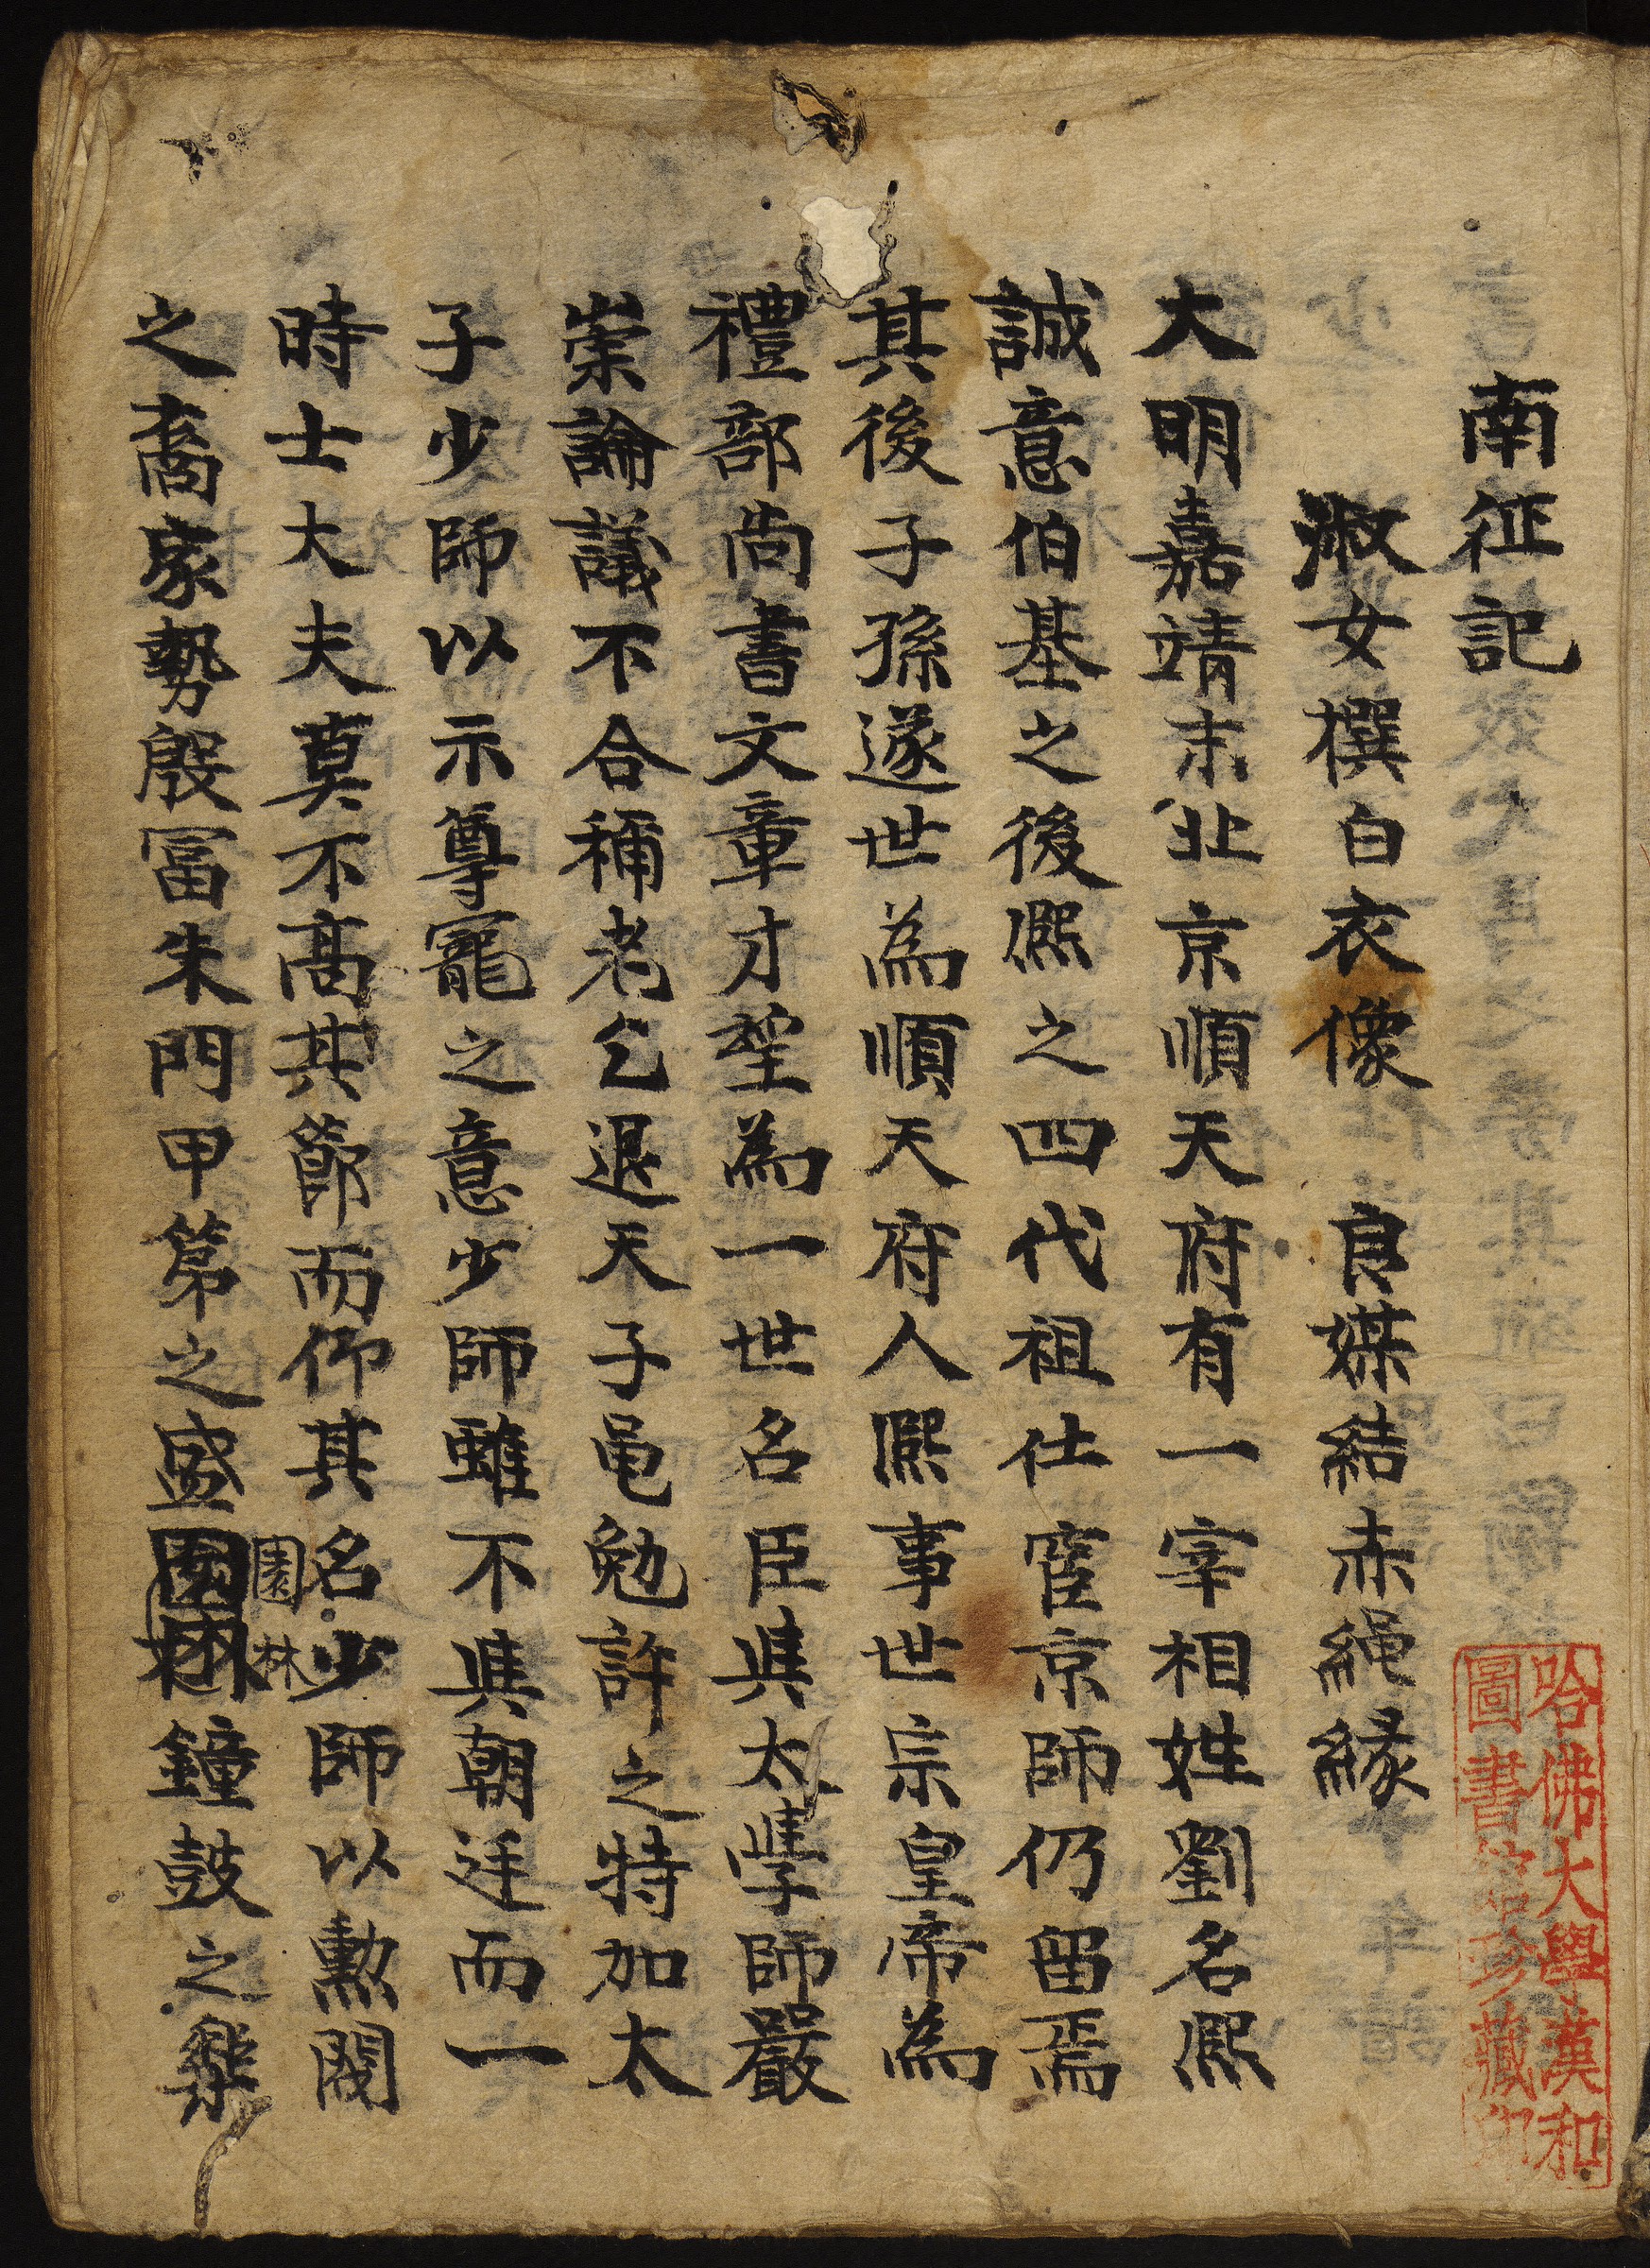 南征記
淑女撰白衣像　良媒結赤繩緣
大明嘉靖末北京順天府有一宰相姓劉名熈
誠意伯基之後熈之四代祖仕宦京師仍留焉
其後子孫遂世為順天府人熈事世宗皇帝為
禮部尚書文章才望為一世名臣與太學師嚴
崇論議不合稱老乞退天子黽勉許之特加太
子少師以示尊寵之意少師雖不與朝廷而一
時士大夫莫不高其節而仰其名少師以勲閥
之裔家勢殷富朱門甲第之盛園林鐘鼓之樂
園林
哈佛大學漢和
圖書館珍藏印